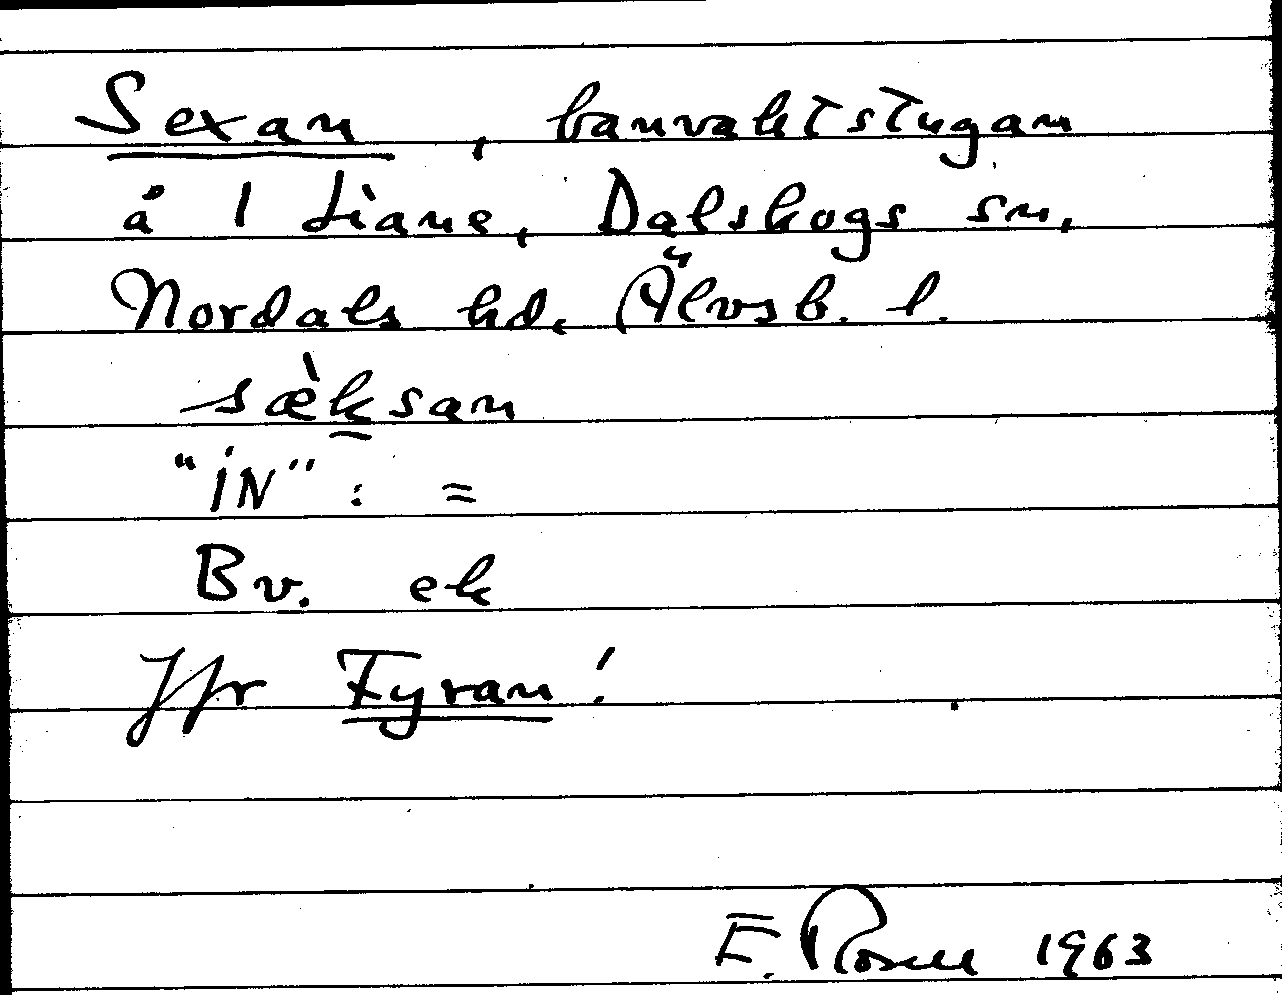 Sexan, banvaktstugan
å 1 Liane, Dalskogs sn,
Nordals hd. Älvsb. l.
sæ̀ksan
"IN": =
Bv. ek
Jfr Fyran!
E. Rosell 1963